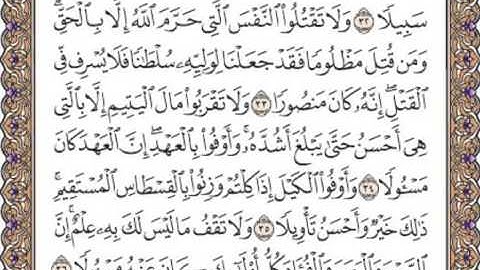 سَبِيلًا ٣٢ وَلَا تَقْتُلُوا۟ ٱلنَّفْسَ ٱلَّتِى حَرَّمَ ٱللَّهُ إِلَّا بِٱلْحَقِّ
وَمَن قُتِلَ مَظْلُومًا فَقَدْ جَعَلْنَا لِوَلِيِّهِۦ سُلْطَٰنًا فَلَا يُسْرِف فِّى
ٱلْقَتْلِ إِنَّهُۥ كَانَ مَنصُورًا ٣٣ وَلَا تَقْرَبُوا۟ مَالَ ٱلْيَتِيمِ إِلَّا بِٱلَّتِى
هِىَ أَحْسَنُ حَتَّىٰ يَبْلُغَ أَشُدَّهُۥ وَأَوْفُوا۟ بِٱلْعَهْدِ إِنَّ ٱلْعَهْدَ كَانَ
مَسْـُٔولًا ٣٤ وَأَوْفُوا۟ ٱلْكَيْلَ إِذَا كِلْتُمْ وَزِنُوا۟ بِٱلْقِسْطَاسِ ٱلْمُسْتَقِيمِ
ذَٰلِكَ خَيْرٌ وَأَحْسَنُ تَأْوِيلًا ٣٥ وَلَا تَقْفُ مَا لَيْسَ لَكَ بِهِۦ عِلْمٌ إِنَّ
ٱلسَّمْعَ وَٱلْبَصَرَ وَٱلْفُؤَادَ كُلُّ أُو۟لَٰٓئِكَ كَانَ عَنْهُ مَسْـُٔولًا ٣٦